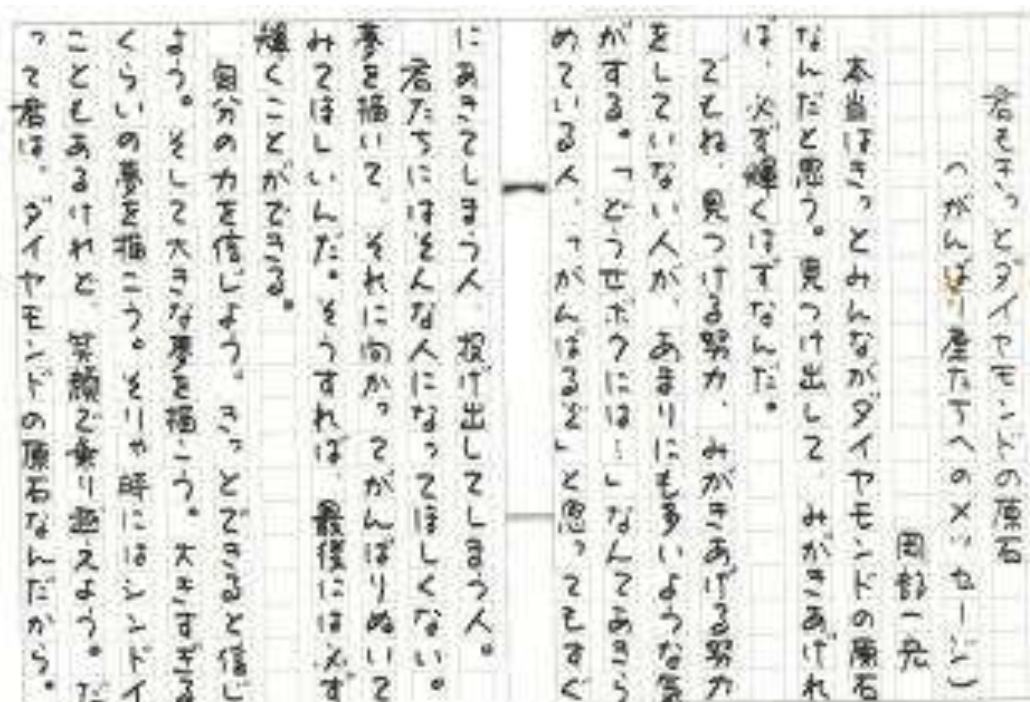 君もきっとダイヤモンドの原石
(がんばり屋たちへのメッセージ)
岡部一亮
本当はきっとみんながダイヤモンドの原石
なんだと思う。見つけ出して、みがきあげれ
ば、必ず輝くはずなんだ。
でもね、見つける努力、みがきあげる努力
をしていない人が、あまりにも多いような気
がする。「どうせボクには…」なんてあきら
めている人、「がんばるぞ」と思ってもすぐ
にあきてしまう人、投げ出してしまう人。
君たちにはそんな人になってほしくない。
夢を描いて、それに向かってがんばりぬいて
みてほしいんだ。そうすれば、最後には必ず
輝くことができる。
自分の力を信じよう。きっとできると信じ
よう。そして大きな夢を描こう。大きすぎる
くらいの夢を描こう。そりゃ時にはシンドイ
こともあるけれど、笑顔で乗り越えよう。だ
って君は、ダイヤモンドの原石なんだから。